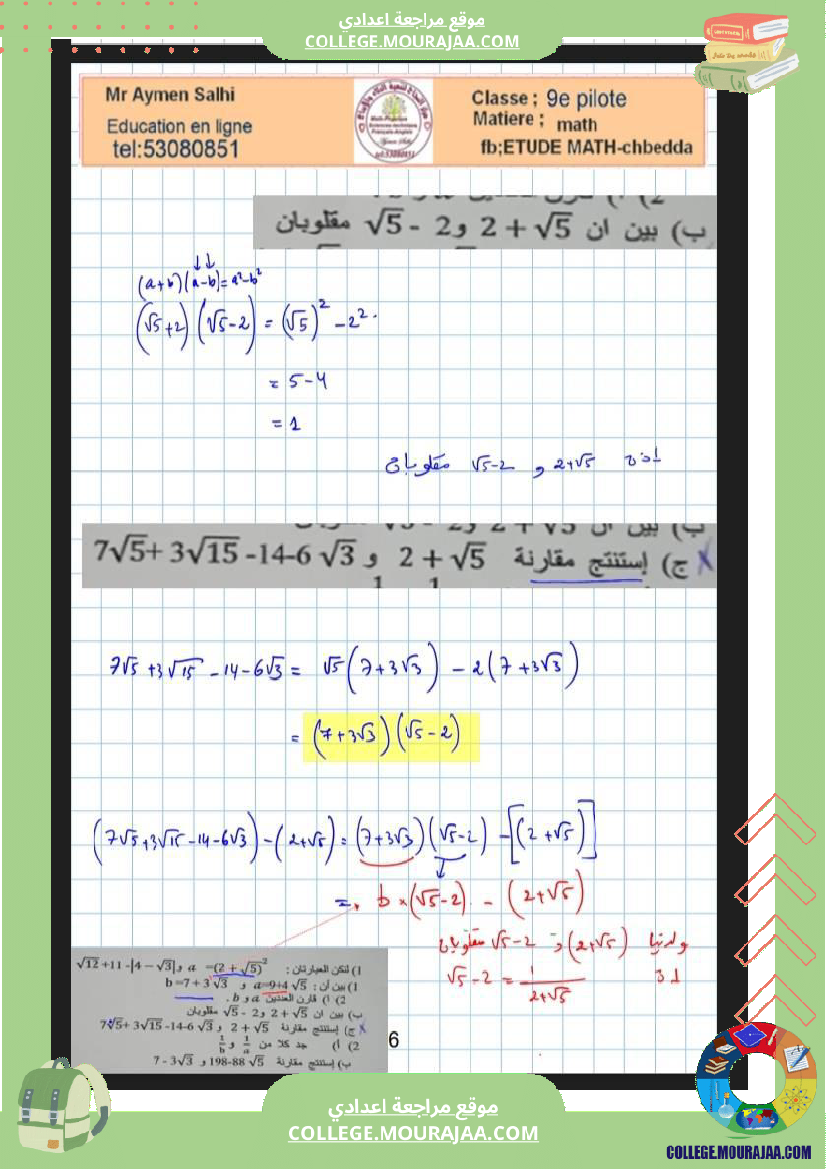 موقع مراجعة اعدادي
COLLEGE.MOURAJAA.COM
Mr Aymen Salhi
Education en ligne
tel:53080851
Classe ; 9e pilote
Matiere ; math
fb;ETUDE MATH-chbedda
ب) بين ان 2 + √5 و 2 - √5 مقلوبان
(a+b)(a-b)=a²-b²
(√5+2)(√5-2) = (√5)² - 2²
= 5-4
= 1
اذن 2+√5 و √5-2 مقلوبان
ج) إستنتج مقارنة 2 + √5 و 7√5+ 3√15 -14-6 √3
7√5 +3√15 -14-6√3 = √5(7+3√3) - 2(7+3√3)
= (7+3√3)(√5-2)
(7√5+3√15-14-6√3)-(2+√5)=(7+3√3)(√5-2)-[(2+√5)]
= b×(√5-2) - (2+√5)
ولدينا (2+√5) و √5-2 مقلوبان
√5-2 = 1/(2+√5)
1) لتكن العبارتان : a =(2 + √5)² و √12 +11 -|4 - √3|
1) بين أن : a=9+4 √5 و b =7+ 3 √3
2) ا) قارن العددين a و b .
ب) بين ان 2 + √5 و 2 - √5 مقلوبان
ج) إستنتج مقارنة 2 + √5 و 7√5+ 3√15 -14-6 √3
2) أ) جد كلا من 1/a و 1/b
ب) إستنتج مقارنة 198-88 √5 و 7 - 3√3
6
موقع مراجعة اعدادي
COLLEGE.MOURAJAA.COM
COLLEGE.MOURAJAA.COM